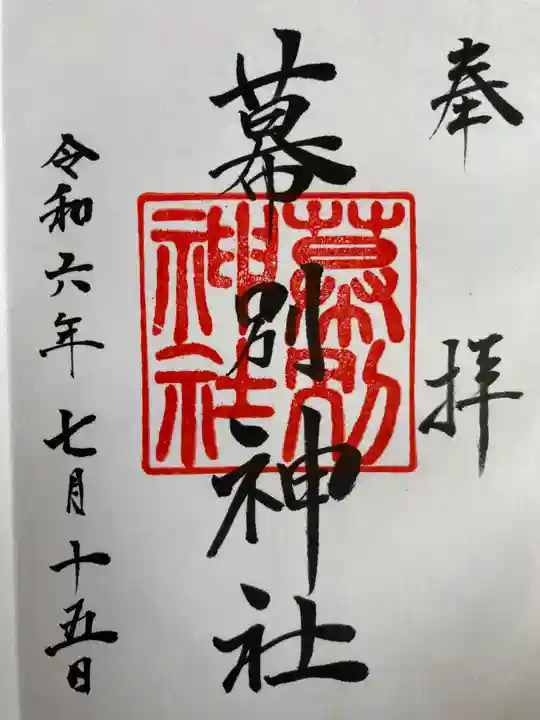 奉拝
幕別神社
幕別
神社
令和六年七月十五日